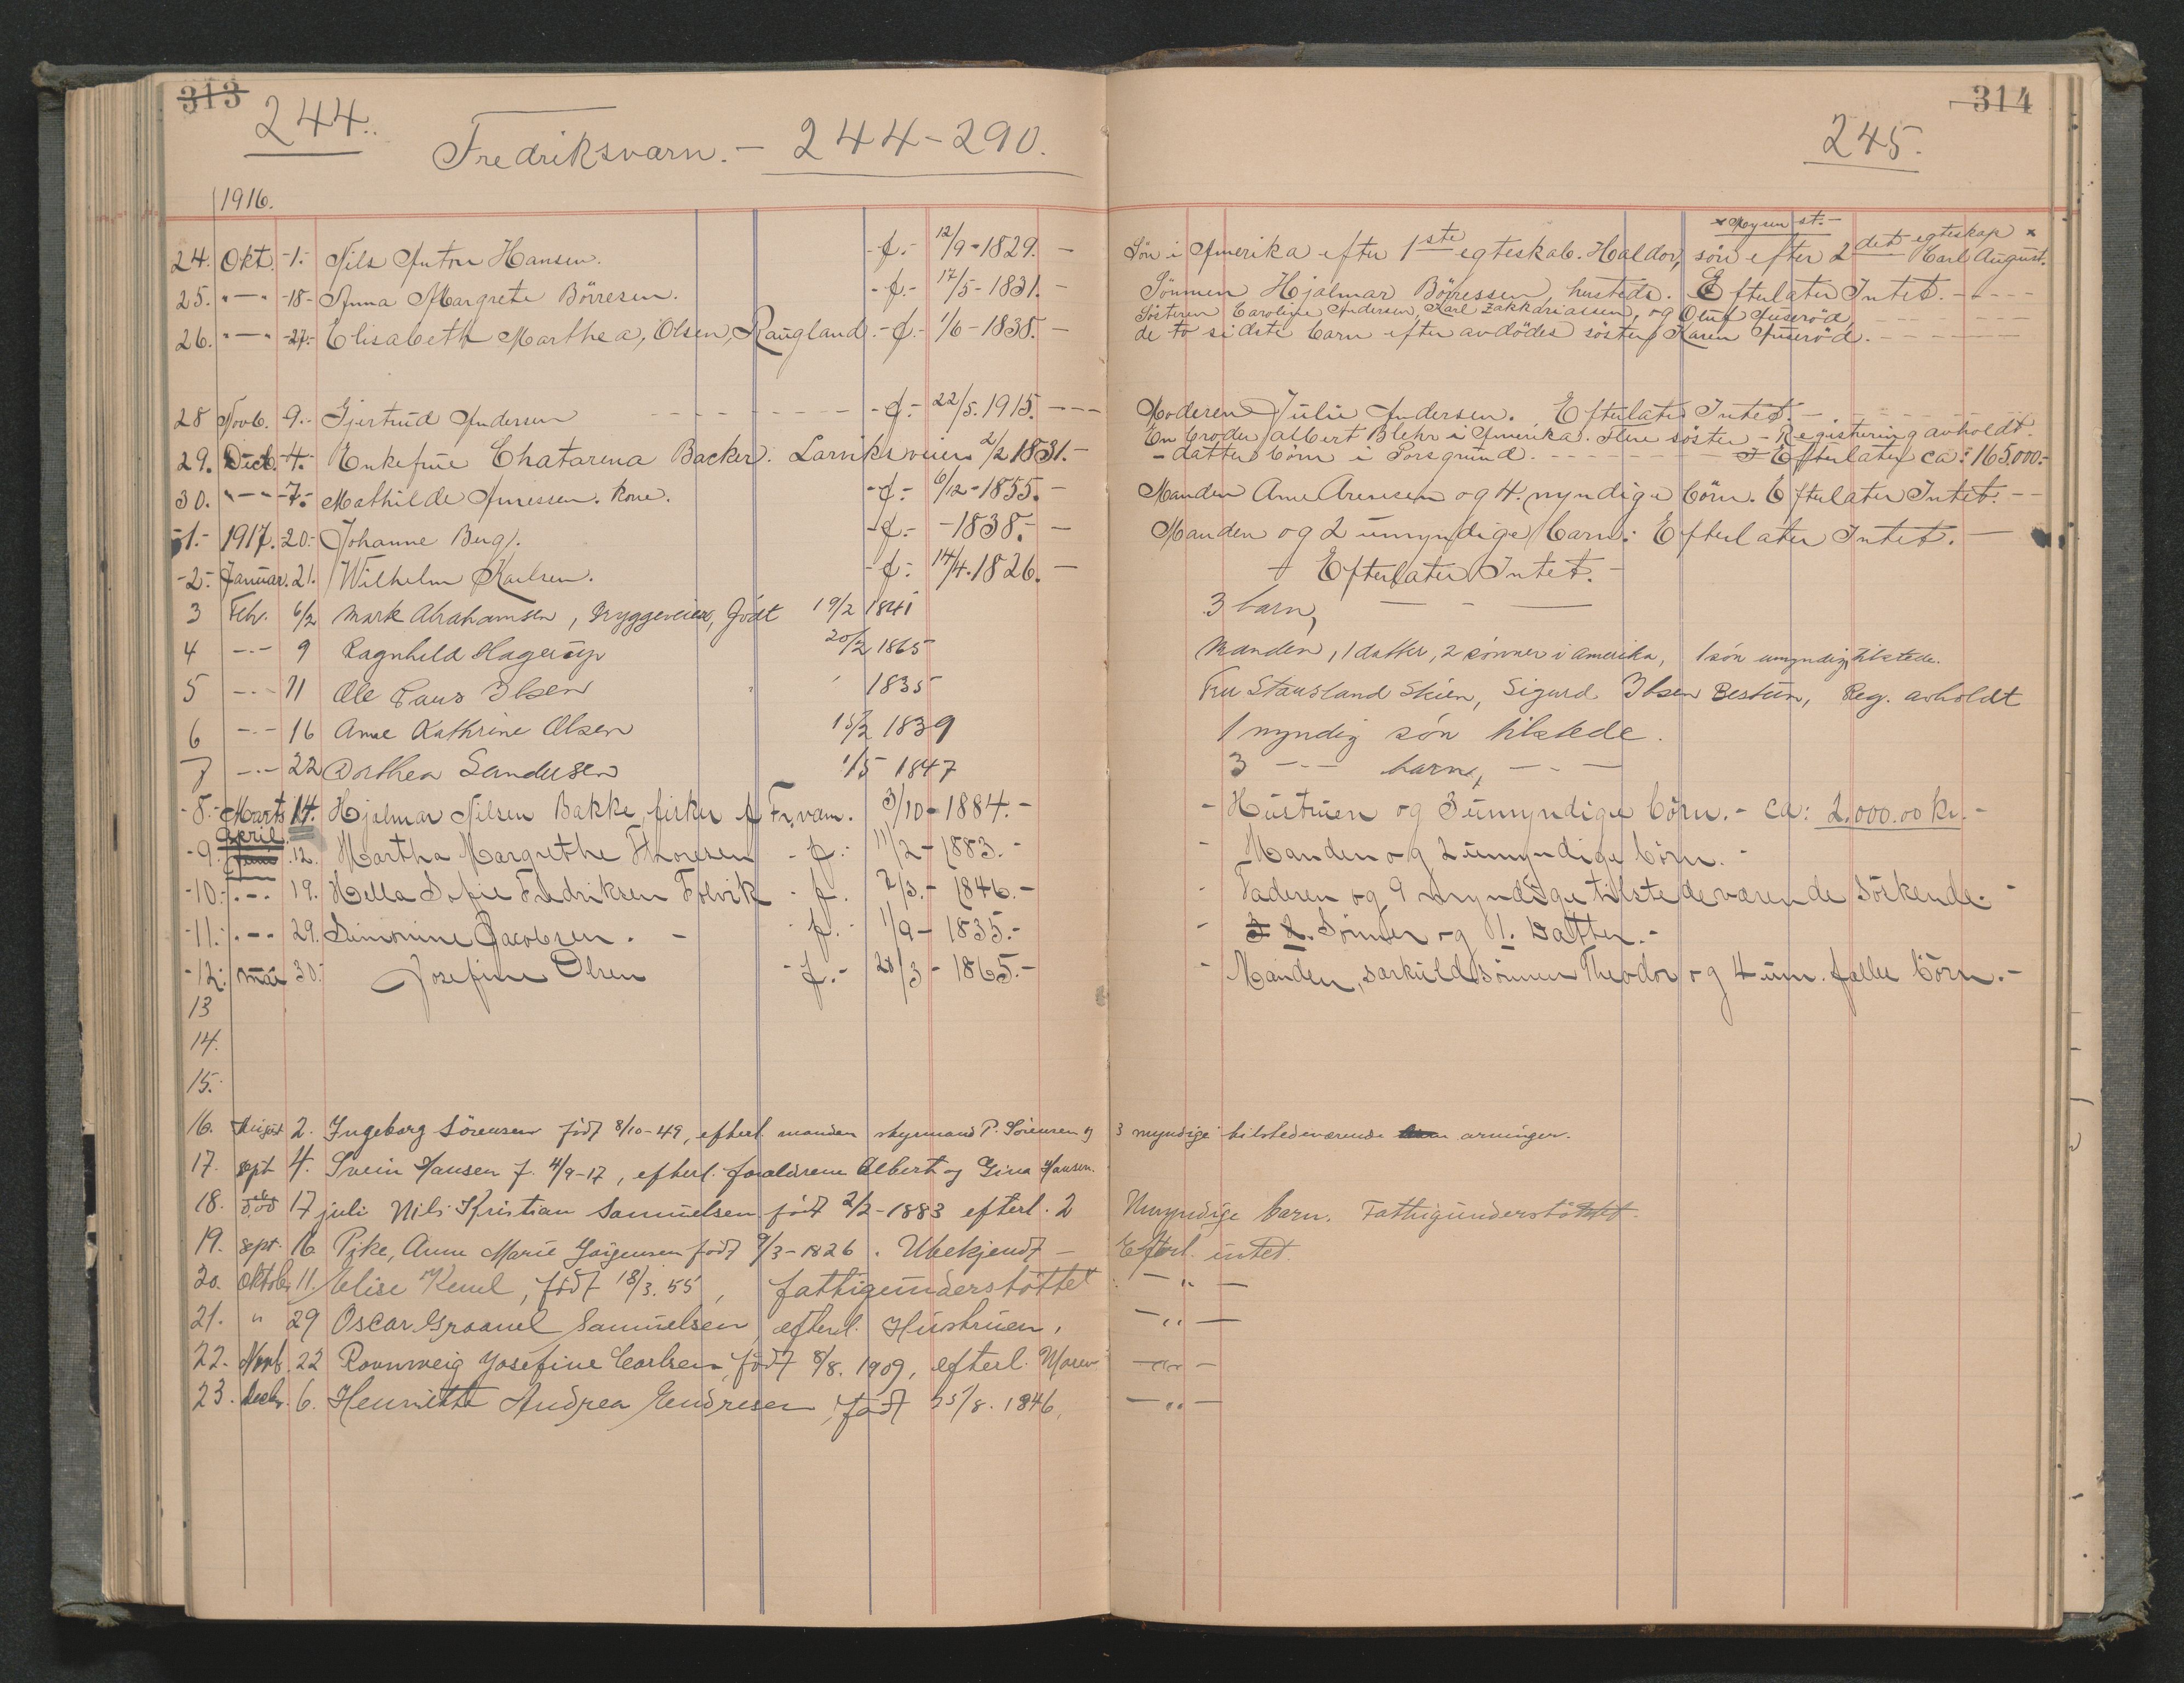 313
314
244.
Fredriksværn. - 244-290.
245.
1916.
24. Okt. -1.- Nils Anton Hansen. -f.- 12/9-1829. - Sön i Amerika efter 1ste egteskab. Haldor, sön efter 2det egteskap x Karl August.
x Mysen st.-
25. "-" -18- Anna Margrete Börresen. -f.- 17/5-1831. - Sönnen Hjalmar Börressen husteds. Efterlater Intet.
26. "-" -27.- Elisabeth Marthea, Olsen, Raugland -f.- 1/6-1838. - Søsteren Caroline Andersen, Karl Zakkariassen, og Oluf
de to sidste barn efter avdödes söster, Karen
28 Novb. 9.- Gjertrud Andersen -f.- 22/5.1915. Moderen Julie Andersen. Efterlater Intet.-
29. Decb. -4.- Enkefrue Chatarena Backer. Larviksveien 2/2 1831.- En broder Albert Blehr i Amerika. Flere söster - Registrering avholdt.
- datters börn i Porsgrund. Efterlater ca: 165,000.-
30. "-" -7.- Mathilde Arnessen. kone. -f.- 6/12-1855. - Manden Arne Arnesen og 4. myndige börn. Efterlater Intet.-
-1.- 1917. -20.- Johanne Berg. -f.- -1838.- - Manden og 2 umyndige barn: Efterlater Intet. -
-2.- Januar. 21. Wilhelm Karlsen. -f.- 14/4.1826. - Efterlater Intet.-
3 Febr. 6/2 Mark Abrahamsen, Bryggeveien, födt 19/2 1841 3 barn,
4 -"- 9 Ragnhild Hagerup 20/2 1865 Manden, 1 datter, 2 sönner i Amerika, 1 sön umyndig, tilstede.
5 -"- 11 Ole Paus Ibsen 1835 Fru Stousland Skien, Sigurd Ibsen Bestun, Reg. avholdt
6 -"- 16 Anne Kathrine Olsen 15/2 1839 1 myndig sön tilstede.
7 -"- 22 Dorthea Sandersen 1/5 1847 3 -"- barn,
-8.- Marts 14. Hjalmar Nilsen Bakke, fisker f Fr.værn. 3/10-1884.- - Hustruen og 3 umyndige börn.- ca: 2.000.00 kr.-
-9.- April 12. Martha Margrethe Thoresen - f.- 11/2-1883.- - Manden og 2 umyndige börn.-
-10.- .-. 19. Hella Sofie Fredriksen Folvik - f. 2/3.- 1846.- - Faderen og 9 myndige tilstedeværende söskende.-
-11.- .-. 29. Simonine Jacobsen. - - f.- 1/9-1835.- - 2. Sönner og 1. Datter.-
-12.- Mai 30.- Josefine Olsen - f.- 28/3-1865.- - Manden, særkuldssönnen Theodor og 4 um. fælles börn.-
13
14.
15.
16. August 2. Ingeborg Sörensen födt 8/10-49, efterl. manden styrmand P. Sörensen og 3 myndige tilstedeværende arvinger.
17. sept 4. Svein Hansen f. 4/9-17, efterl. foreldrene Albert og Gina Hansen.
18. 17 juli Nils Kristian Samuelsen födt 2/2-1883 efterl. 2 Umyndige barn. Fattigunderstöttet.
19. sept. 16 Pike, Anne Marie Jörgensen födt 9/3-1826. Ubekjendt - Efterl. intet.
20. Oktober 11. Elise födt 18/3.55, fattigunderstöttet - " -
21. " 29 Oscar Samuelsen, efterl. Hustruen, - " -
22. Novb. 22 Ronnveig Josefine Carlsen, födt 8/8.1909, efterl. Moren - " -
23. Decbr. 6. Henriette Andrea Endresen, födt 25/8.1846, - " -